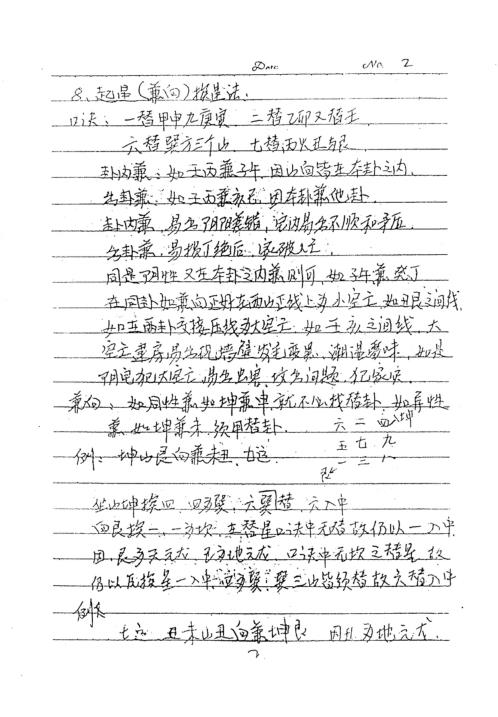 Date No. 2
8、起星(兼向)挨星法:
口诀:一替甲申九庚寅 二替乙卯又替壬
六替巽方三个山 七替丙火丑与艮
卦内兼:如壬丙兼子午,因山向皆在本卦之内,
出卦兼:如壬丙兼亥巳,因本卦兼他卦
卦内兼,易出阴阳差错,室内易出不顺和矛盾,
出卦兼,易损丁绝后,家破人亡
同是阴性又在本卦之内兼则可,如子午兼癸丁
在同卦如兼向正好在两山正线上为小空亡,如丑艮之间线
如在两卦交接压线为大空亡,如壬亥之间线,大
空亡建房易出现墙壁发毛变黑,潮湿霉味,如是
阴宅犯大空亡
兼向:如同性兼如坤兼申,就不必找替卦,如异性
兼,如坤兼未,须用替卦 六 二 四入坤
五 七 九
例:坤山艮向兼未丑,七运 一 三 八
坐山坤挨四,四为巽,六巽替,六入中
向艮挨一,一为坎,在替星口诀中无替故仍以一入中
因,艮为天元龙 口诀中无坎之替星 故
仍以瓦挨星一入中 巽三山皆须替故六替入中
例
七运 丑未山丑向兼坤艮 因丑为地元龙
2